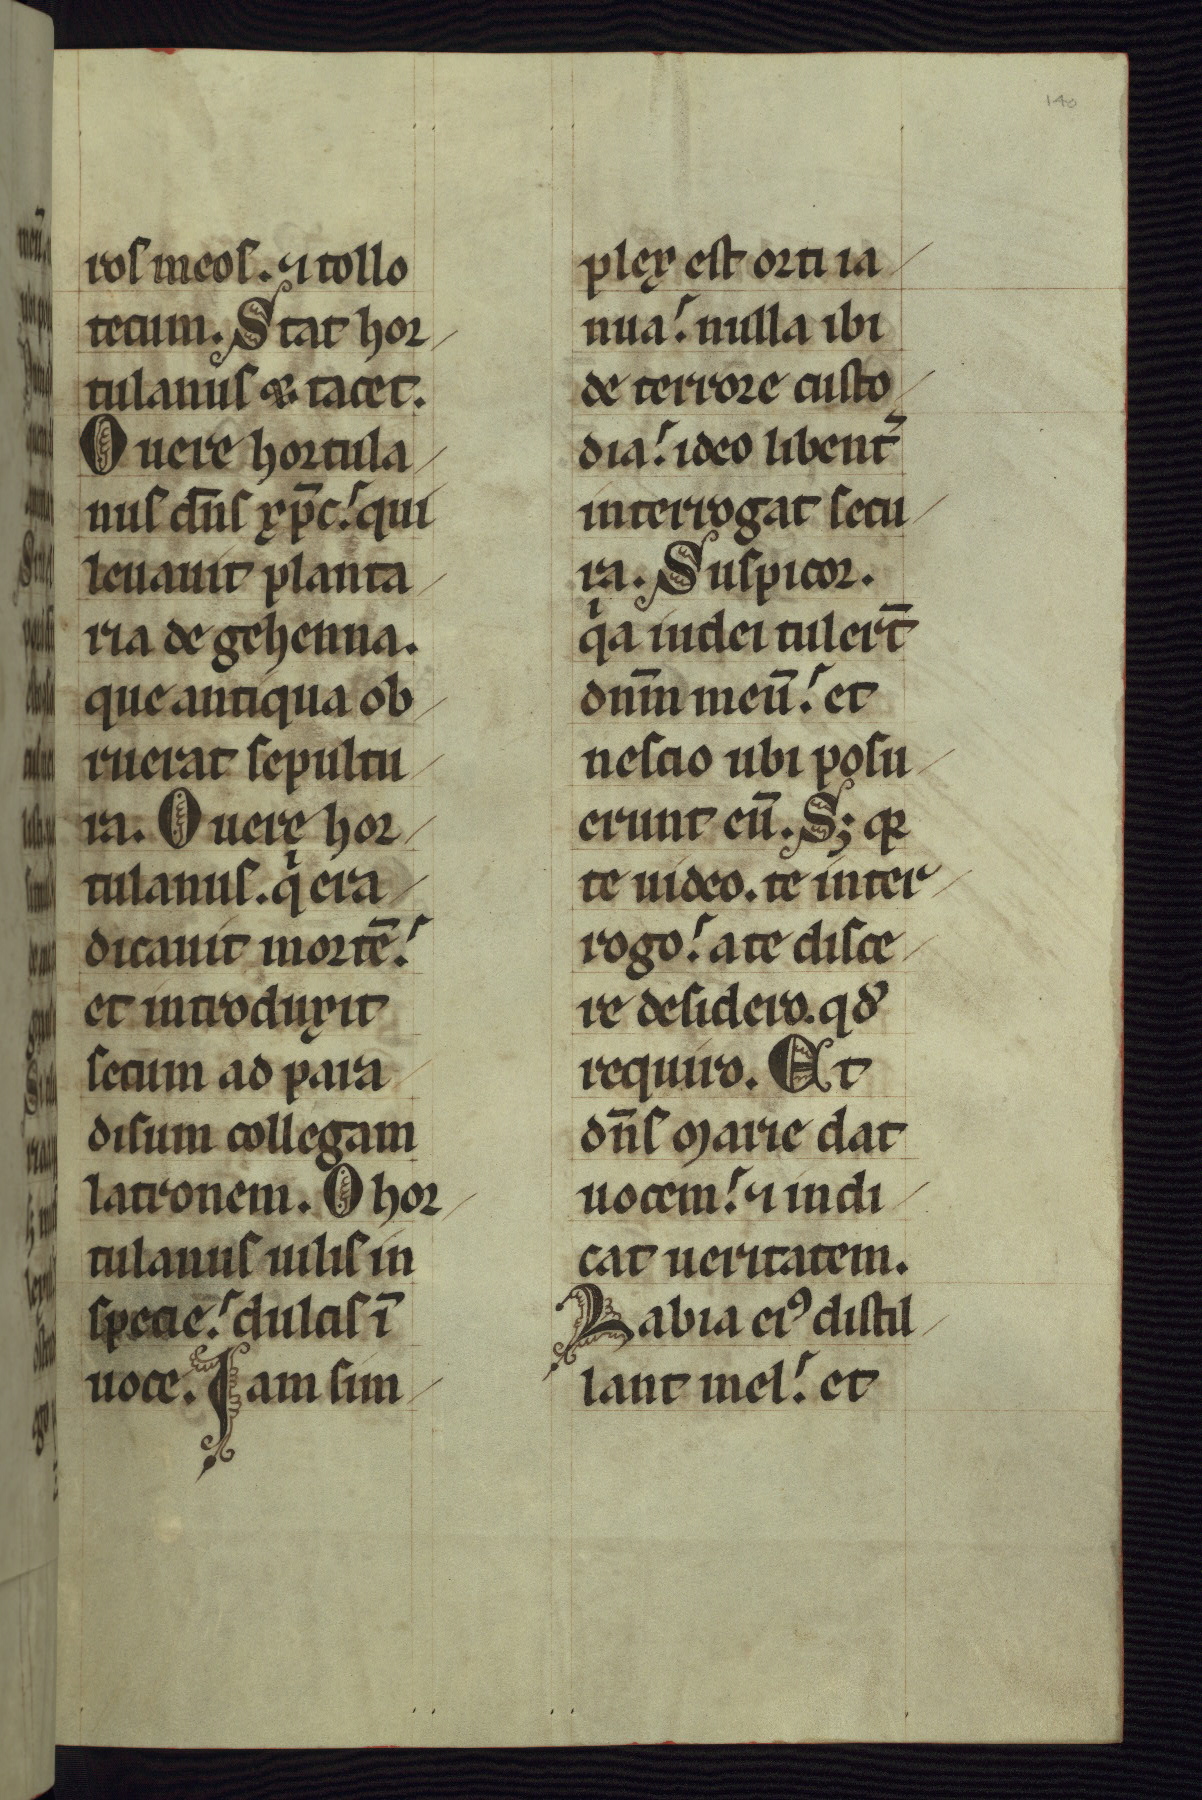 140
ros meos. ⁊ tollo
tecum. Stat hor
tulanus & tacet.
O uere hortula
nus dn̄s xp̄c. qui
leuauit planta
ria de gehenna.
que antiqua ob
ruerat sepultu
ra. O uere hor
tulanus. qͥ era
dicauit mortē.
et introduxit
secum ad para
disum collegam
latronem. O hor
tulanus uilis in
specie. dulcis ī
uoce. Iam sim
plex est orti ia
nua. nulla ibi
de terrore custo
dia. ideo libent᷑
interrogat secu
ra. Suspicor.
qͥa iudei tulerт̄
dnm̄ meū. et
nescio ubi posu
erunt eū. Sꝫ qꝛ
te uideo. te inter
rogo. a te disce
re desidero. qđ
requiro. Et
dn̄s marie dat
uocem. ⁊ indi
cat ueritatem.
Labia eiꝰ distil
lant mel. et